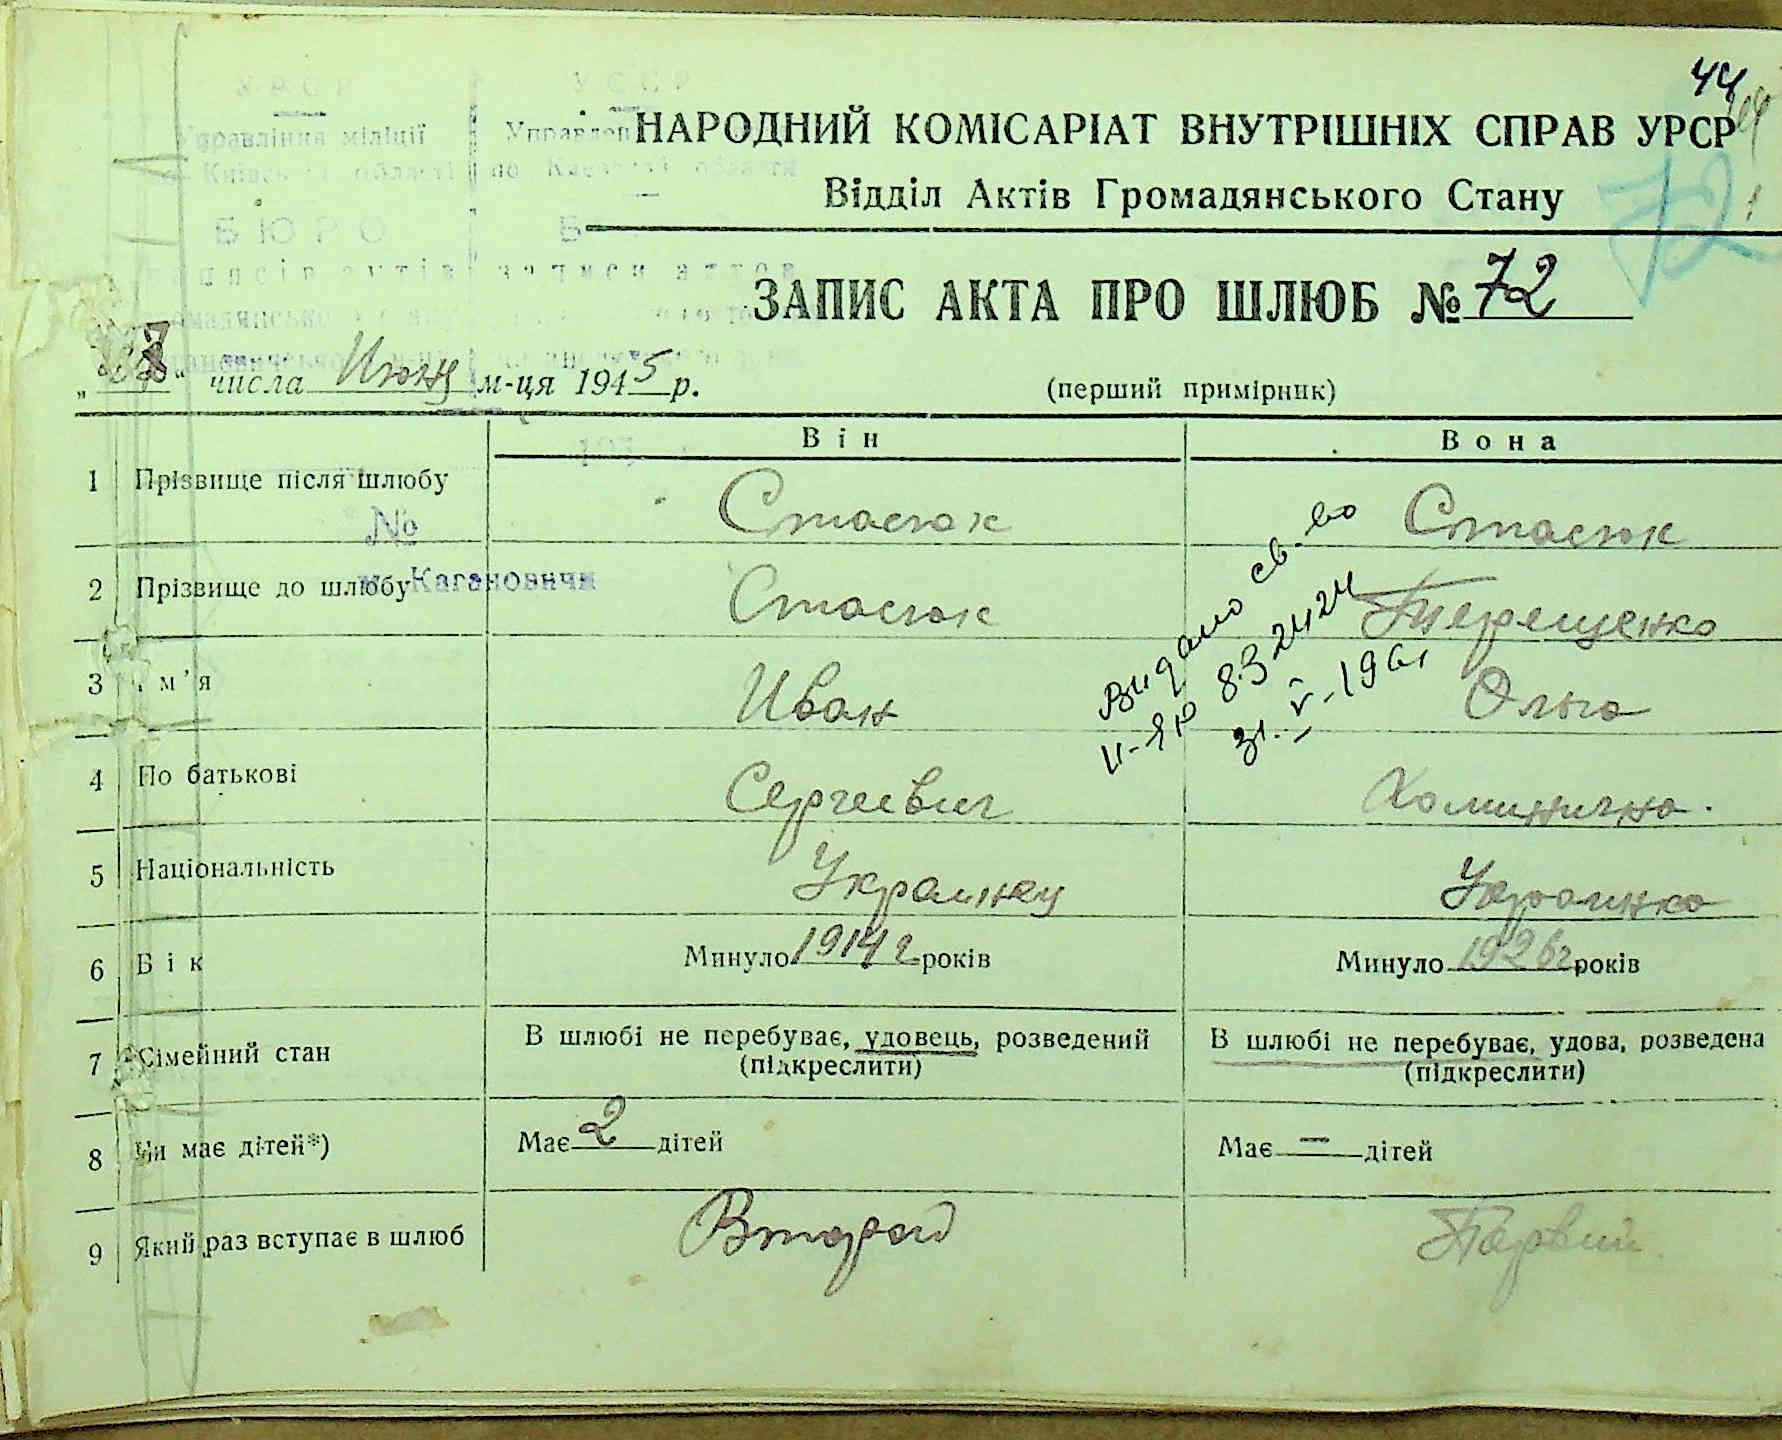 44
НАРОДНИЙ КОМІСАРІАТ ВНУТРІШНІХ СПРАВ УРСР
Відділ Актів Громадянського Стану
72
ЗАПИС АКТА ПРО ШЛЮБ № 72
УРСР
Управління міліції
БЮРО
числа Июня м-ця 1945 р.
(перший примірник)
Він Вона
1 Прізвище після шлюбу Стасюк Стасюк
№
м. Кагановичи
2 Прізвище до шлюбу Стасюк Терещенко
3 Ім'я Иван Ольга
4 По батькові Сергеевич Хоминична.
5 Національність Украинец Украинка
6 Вік Минуло 1914 г років Минуло 1926 г років
7 Сімейний стан В шлюбі не перебуває, удовець, розведений В шлюбі не перебуває, удова, розведена
(підкреслити) (підкреслити)
8 Чи має дітей*) Має 2 дітей Має — дітей
9 Який раз вступає в шлюб Второй Первий
Видано св-во
II-ЯЮ 83 2424
31.V-1961